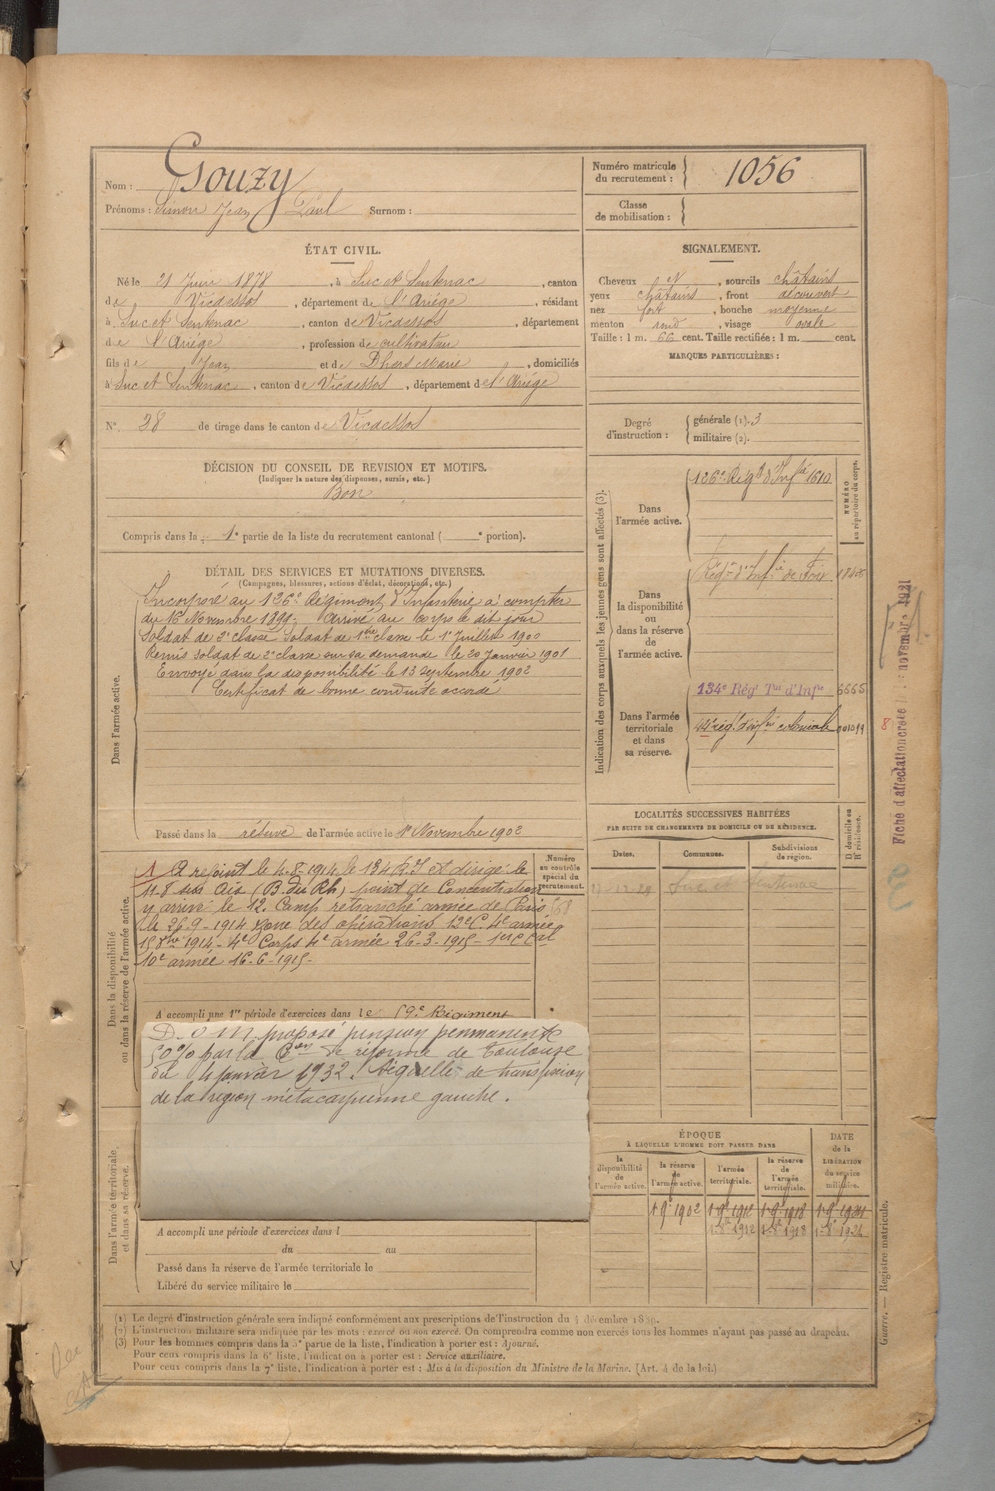 Nom : Gouzy
Prénoms : Simon Jean Paul Surnom :
Numéro matricule du recrutement : 1056
Classe de mobilisation :
ÉTAT CIVIL.
Né le 21 Juin 1878, à Suc et Sentenac, canton
de Vicdessos, département de l'Ariége, résidant
à Suc et Sentenac, canton de Vicdessos, département
de l'Ariége, profession de cultivateur
fils de Jean et de Dhers Marie, domiciliés
à Suc et Sentenac, canton de Vicdessos, département de l'Ariége
N° 28 de tirage dans le canton de Vicdessos
SIGNALEMENT.
Cheveux N, sourcils châtains
yeux châtains, front découvert
nez fort, bouche moyenne
menton rond, visage ovale
Taille : 1 m. 66 cent. Taille rectifiée : 1 m. cent.
MARQUES PARTICULIÈRES :
Degré d'instruction : générale (1). 3
militaire (2).
DÉCISION DU CONSEIL DE REVISION ET MOTIFS.
(Indiquer la nature des dispenses, sursis, etc.)
Bon
Compris dans la 1e partie de la liste du recrutement cantonal ( e portion).
DÉTAIL DES SERVICES ET MUTATIONS DIVERSES.
(Campagnes, blessures, actions d'éclat, décorations, etc.)
Dans l'armée active.
Incorporé au 126e Régiment d'Infanterie à compter
du 16 Novembre 1899. Arrivé au corps le dit jour
Soldat de 2e classe Soldat de 1ère classe le 1er Juillet 1900
Remis soldat de 2e classe sur sa demande le 20 Janvier 1901
Envoyé dans la disponibilité le 13 septembre 1902
Certificat de bonne conduite accordé
Passé dans la réserve de l'armée active le 1er Novembre 1902
Indication des corps auxquels les jeunes gens sont affectés (3).
NUMÉRO au répertoire du corps.
Dans l'armée active. 126e Régt d'Infie 1610
Dans la disponibilité ou dans la réserve de l'armée active. Régt d'Infie de Foix
Dans l'armée territoriale et dans sa réserve. 134e Régt Tal d'Infie 6665
régt d'infie coloniale
Fiche d'affectation novembre 1921
LOCALITÉS SUCCESSIVES HABITÉES
PAR SUITE DE CHANGEMENTS DE DOMICILE OU DE RÉSIDENCE.
Dates. Communes. Subdivisions de région. D domicile ou R résidence.
Suc et Sentenac
Dans la disponibilité ou dans la réserve de l'armée active.
Numéro au contrôle spécial du recrutement.
A rejoint le 4-8-1914 le 134 R.I et dirigé le
11-8 sur Aix (B. du Rh) point de Concentration
y arrivé le 12. Camp retranché armée de Paris
le 26-9-1914 zone des opérations 12e C. 4e armée
1914 - 4e Corps 4e armée 26-3-1915 - 1er C Cal
10e armée 16-6-1915-
A accompli une 1re période d'exercices dans le 59e Régiment
D. O M. proposé pension permanente
50% par la Con de réforme de Toulouse
du 4 janvier 1932. Séquelles de transfixion
de la région métacarpienne gauche.
Dans l'armée territoriale et dans sa réserve.
A accompli une période d'exercices dans l
du au
Passé dans la réserve de l'armée territoriale le
Libéré du service militaire le
ÉPOQUE
À LAQUELLE L'HOMME DOIT PASSER DANS
la disponibilité de l'armée active. la réserve de l'armée active. l'armée territoriale. la réserve de l'armée territoriale. DATE de la LIBÉRATION du service militaire.
1 9bre 1902 1 9bre 1912 1 9bre 1918
1912 1918
(1) Le degré d'instruction générale sera indiqué conformément aux prescriptions de l'instruction du 4 décembre 1889.
(2) L'instruction militaire sera indiquée par les mots : exercé ou non exercé. On comprendra comme non exercés tous les hommes n'ayant pas passé au drapeau.
(3) Pour les hommes compris dans la 5e partie de la liste, l'indication à porter est : Ajourné.
Pour ceux compris dans la 6e liste, l'indication à porter est : Service auxiliaire.
Pour ceux compris dans la 7e liste, l'indication à porter est : Mis à la disposition du Ministre de la Marine. (Art. 4 de la loi.)
Guerre. — Registre matricule.